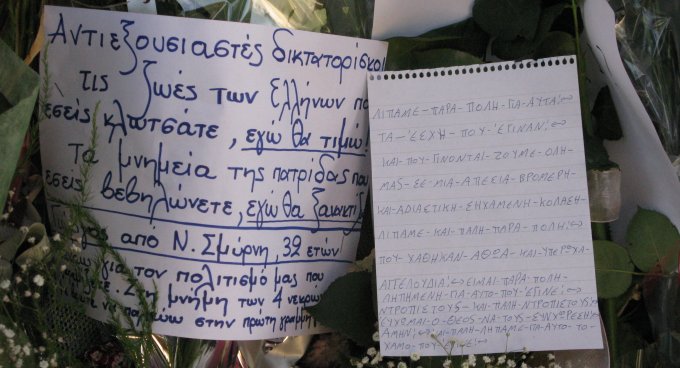 Αντιεξουσιαστές δικτατορίσκοι
τις ζωές των Ελλήνων πο
εσείς κλωτσάτε, εγώ θα τιμώ!
Τα μνημεία της πατρίδας που
εσείς βεβηλώνετε, εγώ θα
από Ν. Σμύρνη, 32 ετών
για τον πολιτισμό μας που
Στη μνήμη των 4 νεκρών
στην πρώτη γραμμή
ΛΙΠΑΜΕ-ΠΑΡΑ-ΠΟΛΗ-ΓΙΑ-ΑΥΤΑ;
ΤΑ-ΈΣΧΗ-ΠΟΥ-ΈΓΙΝΑΝ;
ΚΑΙ-ΠΟΥ-ΓΙΝΟΝΤΑΙ-ΖΟΥΜΕ-ΟΛΗ-
ΜΑΣ-ΣΕ-ΜΙΑ-ΑΠΕΣΙΑ-ΒΡΟΜΕΡΗ-
ΚΑΙ-ΑΔΙΑΣΤΙΚΗ-ΣΗΧΑΜΕΝΗ-ΚΟΛΑΣΗ
ΛΙΠΑΜΕ-ΚΑΙ-ΠΑΛΗ-ΠΑΡΑ-ΠΟΛΗ;
ΠΟΥ-ΧΑΘΗΚΑΝ-ΑΘΩΑ-ΚΑΙ-ΥΠΕΡΟΧΑ-
ΑΓΓΕΛΟΥΔΙΑ; ΕΙΜΑΙ-ΠΑΡΑ-ΠΟΛΗ-
ΛΗΠΗΜΕΝΗ-ΓΙΑ-ΑΥΤΟ-ΠΟΥ-ΕΓΙΝΕ;
ΝΤΡΟΠΙΣΤΟΥΣ-ΚΑΙ-ΠΑΛΗ-ΝΤΡΟΠΙΣΤΟΥΣ
ΕΥΧΟΜΑΙ-Ο-ΘΕΟΣ-ΝΑ-ΤΟΥΣ-ΣΥΝΧΩΡΕΣΗ
ΑΜΗΝ; ΚΑΙ-ΠΑΛΗ-ΛΗΠΑΜΕ-ΓΙΑ-ΑΥΤΟ-ΤΟ-
ΧΑΜΟ-ΠΟΥ-ΕΓΙΝΕ;